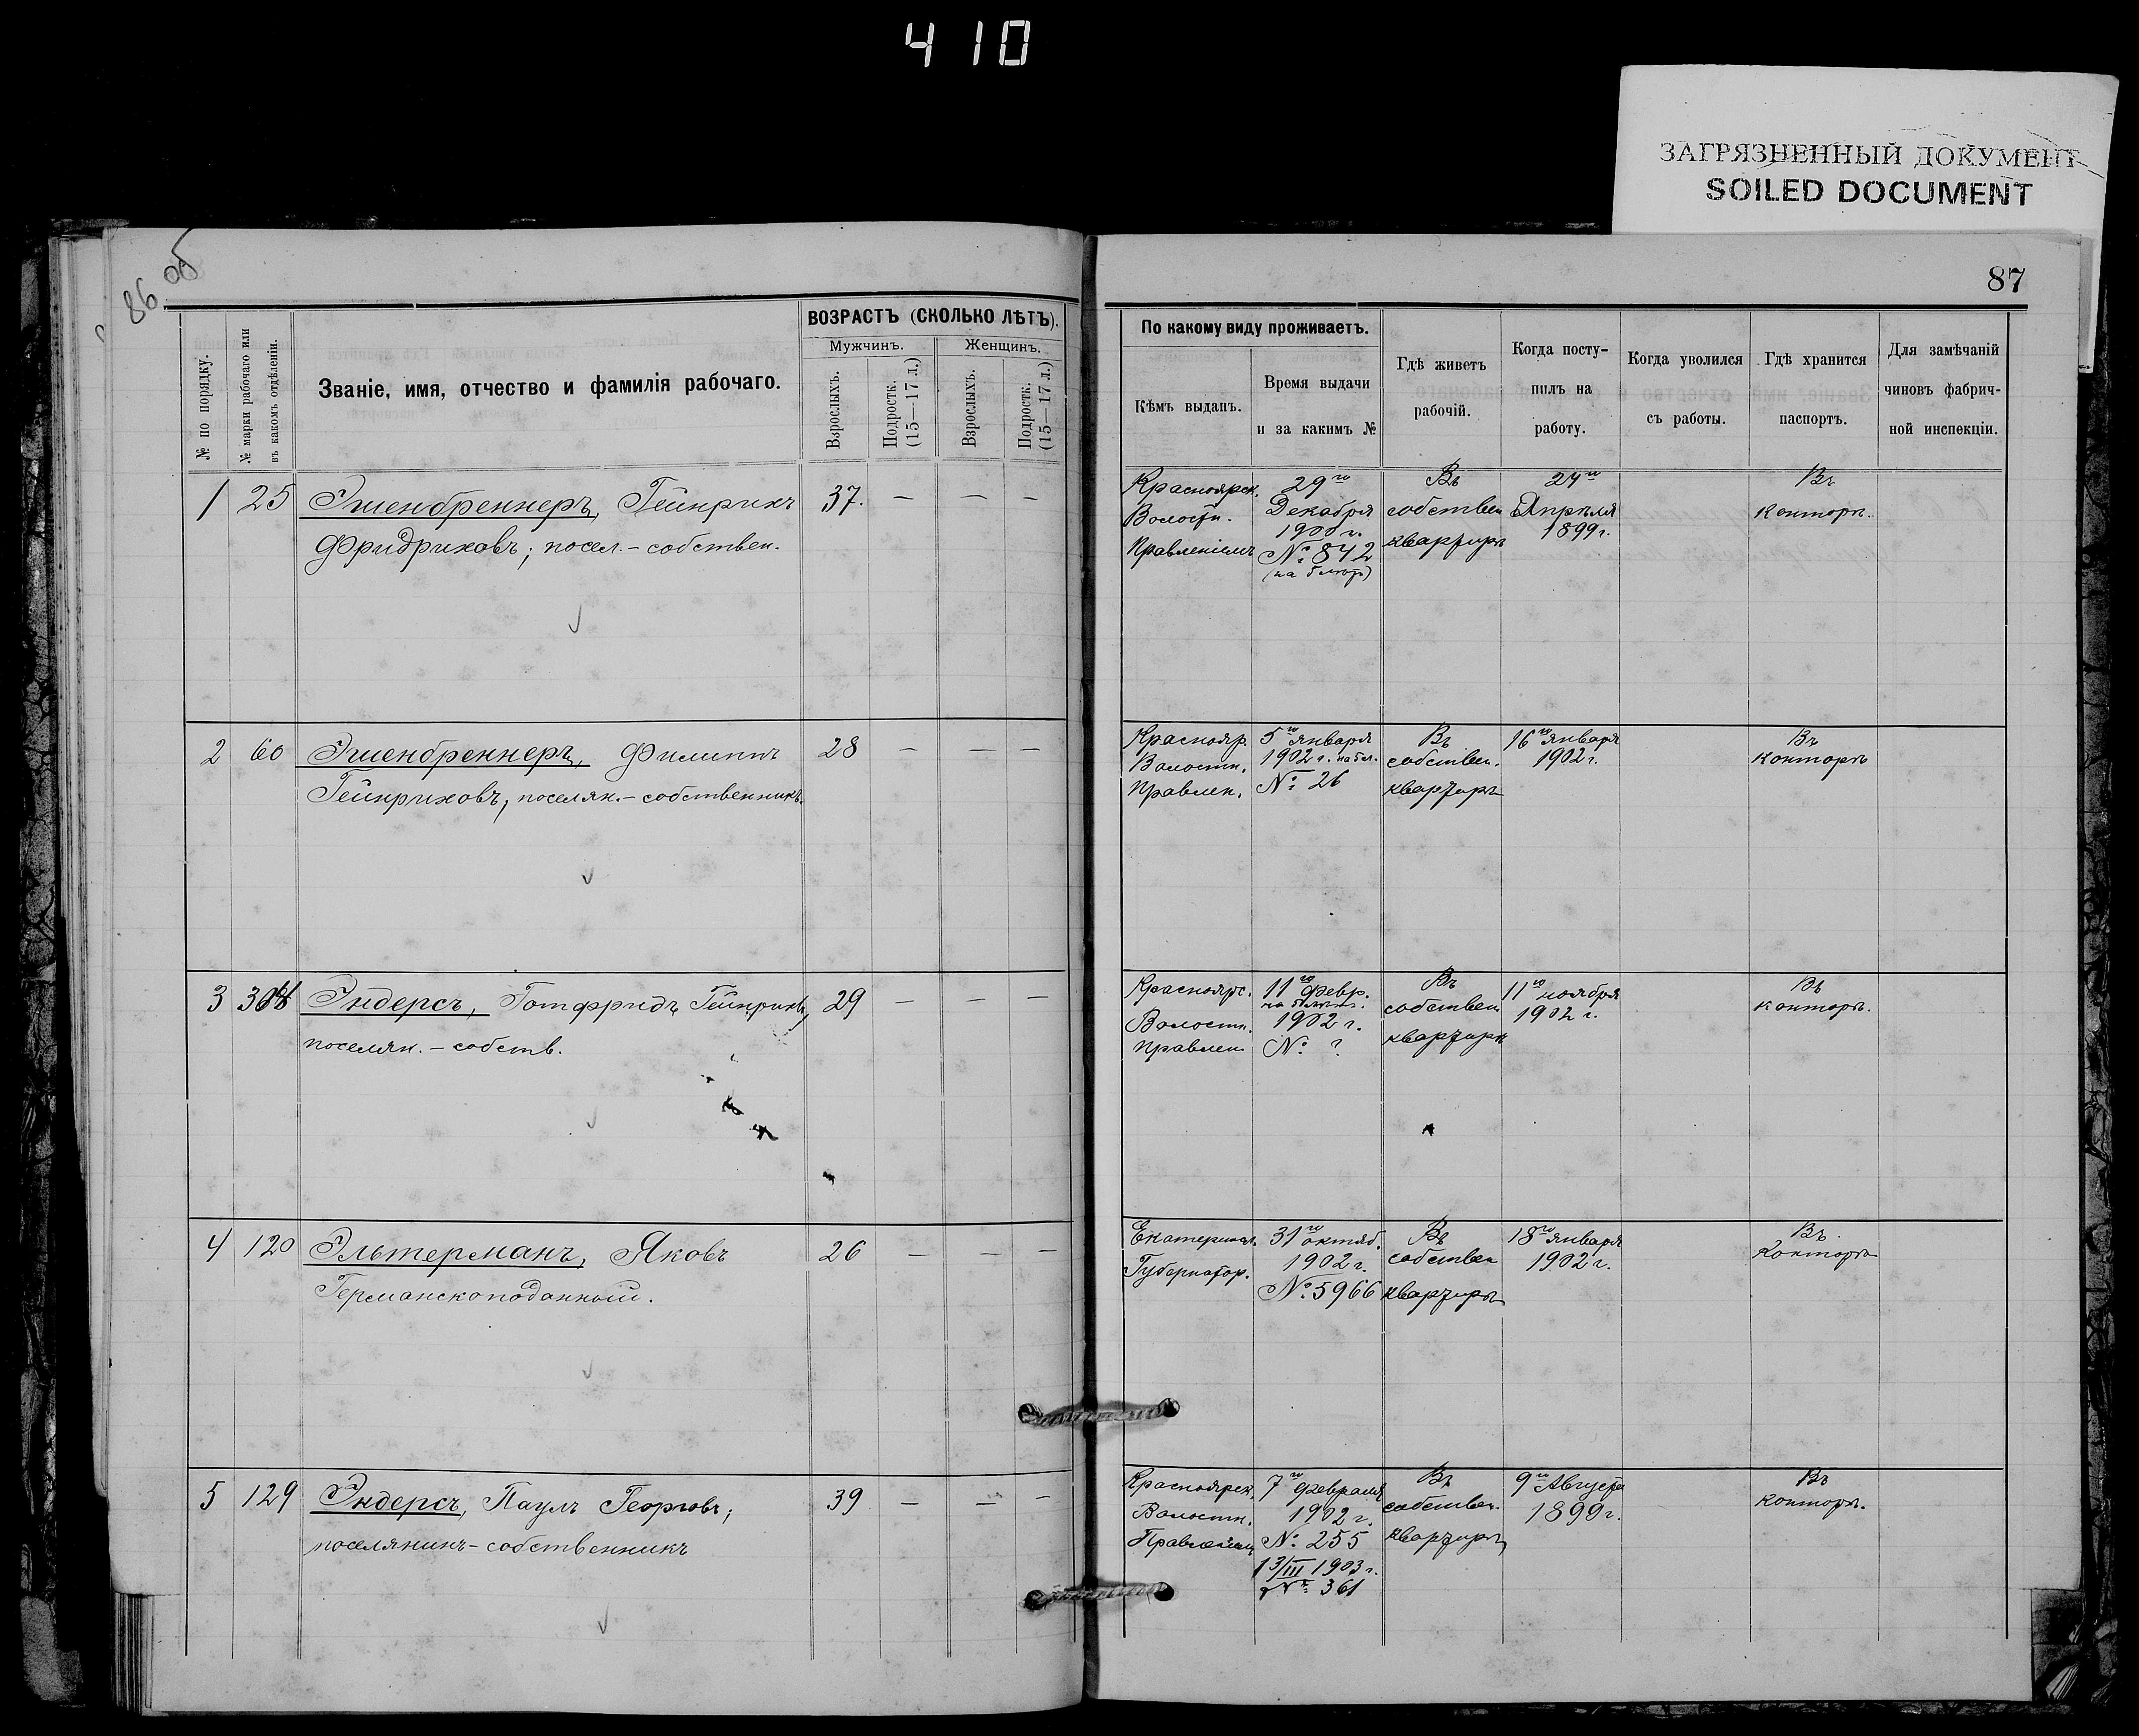 410
ЗАГРЯЗНЕННЫЙ ДОКУМЕНТ
SOILED DOCUMENT
86 об
87
№ по порядку.
№ марки рабочаго или
въ какомъ отдѣленіи.
Званіе, имя, отчество и фамилія рабочаго.
ВОЗРАСТЪ (СКОЛЬКО ЛѢТЪ).
Мужчинъ.
Женщинъ.
Взрослыхъ.
Подростк.
(15—17 л.)
Взрослыхъ.
Подростк.
(15—17 л.)
По какому виду проживаетъ.
Кѣмъ выданъ.
Время выдачи
и за какимъ №
Гдѣ живетъ
рабочій.
Когда посту-
пилъ на
работу.
Когда уволился
съ работы.
Гдѣ хранится
паспортъ.
Для замѣчаній
чиновъ фабрич-
ной инспекціи.
1 25 Эшенбреннеръ, Гейнрихъ 37. — — —
Фридриховъ; посел.-собствен.
Красноярск. 29го Въ 24го Въ
Волостн. Декабря собствен Апрѣля Конторѣ.
Правленіемъ 1900 г. квартирѣ 1899 г.
№ 842
2 60 Эшенбреннеръ, Филиппъ 28 — — —
Гейнриховъ, поселян.-собственникъ.
Краснояр. 5го января Въ 16го января Въ
Волостн. 1902 г. на бл. собствен. 1902 г. Конторѣ
Правлен. № 26 квартирѣ
3 Эндерсъ, Готфридъ Гейнрихъ, 29 — — —
поселян.-собств.
Краснояре. 11го февр. Въ 11го ноября Въ
собствен 1902 г. конторѣ.
Волостн. 1902 г. квартирѣ
правлен № ?
4 120 Эльтерманъ, Яковъ 26 — — —
Германскоподанный.
Екатеринал. 31го октяб. Въ 18го января Въ
Губернатор. 1902 г. собствен 1902 г. Конторѣ
№ 5966 квартирѣ
5 129 Эндерсъ, Паулъ Георговъ; 39 — — —
поселянинъ-собственникъ
Красноярск. 7го февраля Въ 9го Августа Въ
Волостн. 1902 г. собствен. 1899 г. конторѣ.
Правленіемъ № 255 квартирѣ
13/III 1903 г.
№ 361